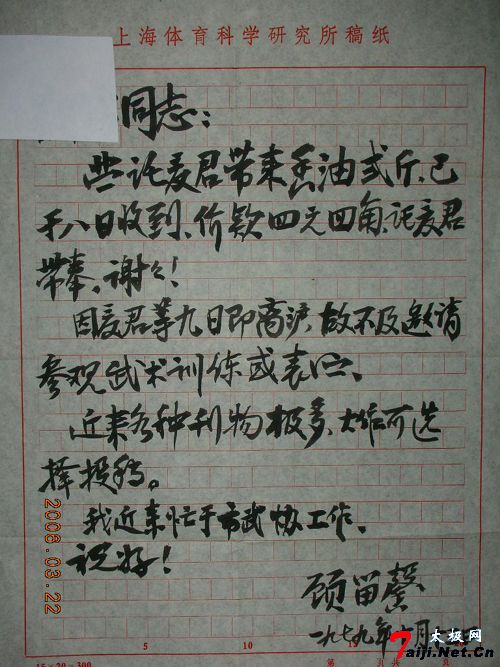 上海体育科学研究所稿纸
同志：
讬麦君带来香油弍斤、已
于八日收到、价款四元四角、讬麦君
带奉。谢々！
因麦君等九日即离沪，故不及邀请
参观武术训练或表演。
近来各种刊物极多，大作可选
择投稿。
我近来忙于市武协工作。
祝好！
顾留馨
一九七九年 月
2008.03.22
15×20=300
5
10
第
太极网
Taiji.Net.Cn